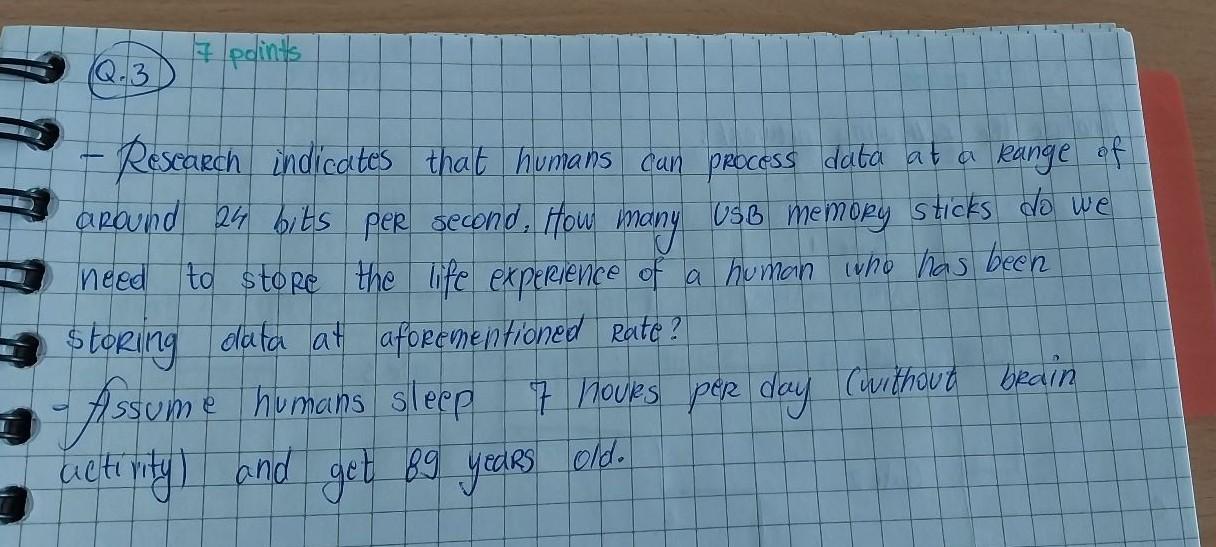 Q.3 7 points
- Research indicates that humans can process data at a range of
around 24 bits per second. How many USB memory sticks do we
need to store the life experience of a human who has been
storing data at aforementioned rate?
- Assume humans sleep 7 hours per day (without brain
activity) and get 89 years old.